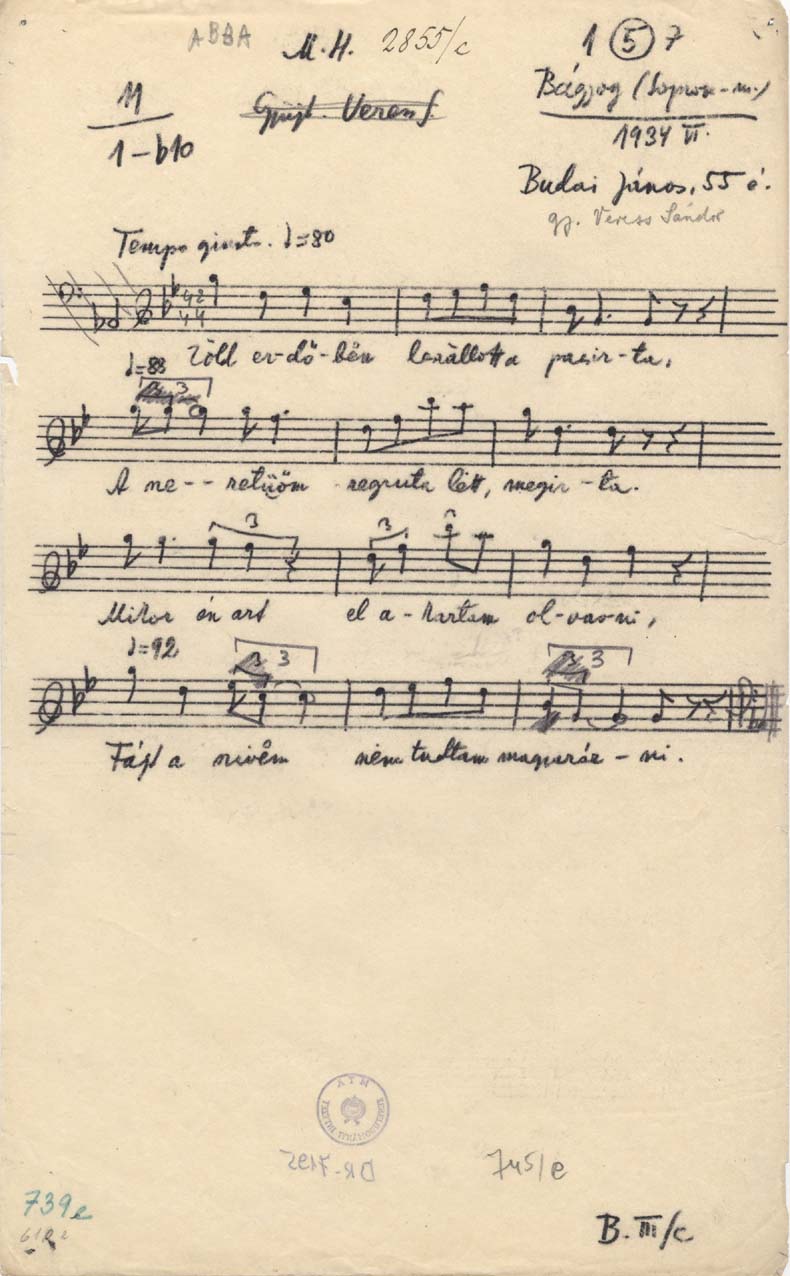 ABBA
M.H. 2855/c
1 5 7
11
1-b10
Gyüjt. Veress S.
Bágyog (Sopron-m.)
1934 VI.
Budai János, 55 é.
gy. Veress Sándor
Tempo giusto. ♩=80
4 2
4 4
Zöld er-dő-bën leszállott a pacsir-ta,
♩=88
3 3
A sze-- retüöm regruta lëtt, megir-ta.
3 3
Mikor én azt el a-kartam ol-vasni,
♩=92
3 3 3 3
Fájt a szivëm nëm tudtam magyaráz-ni.
DR-7195
745/e
739e
B. III/c